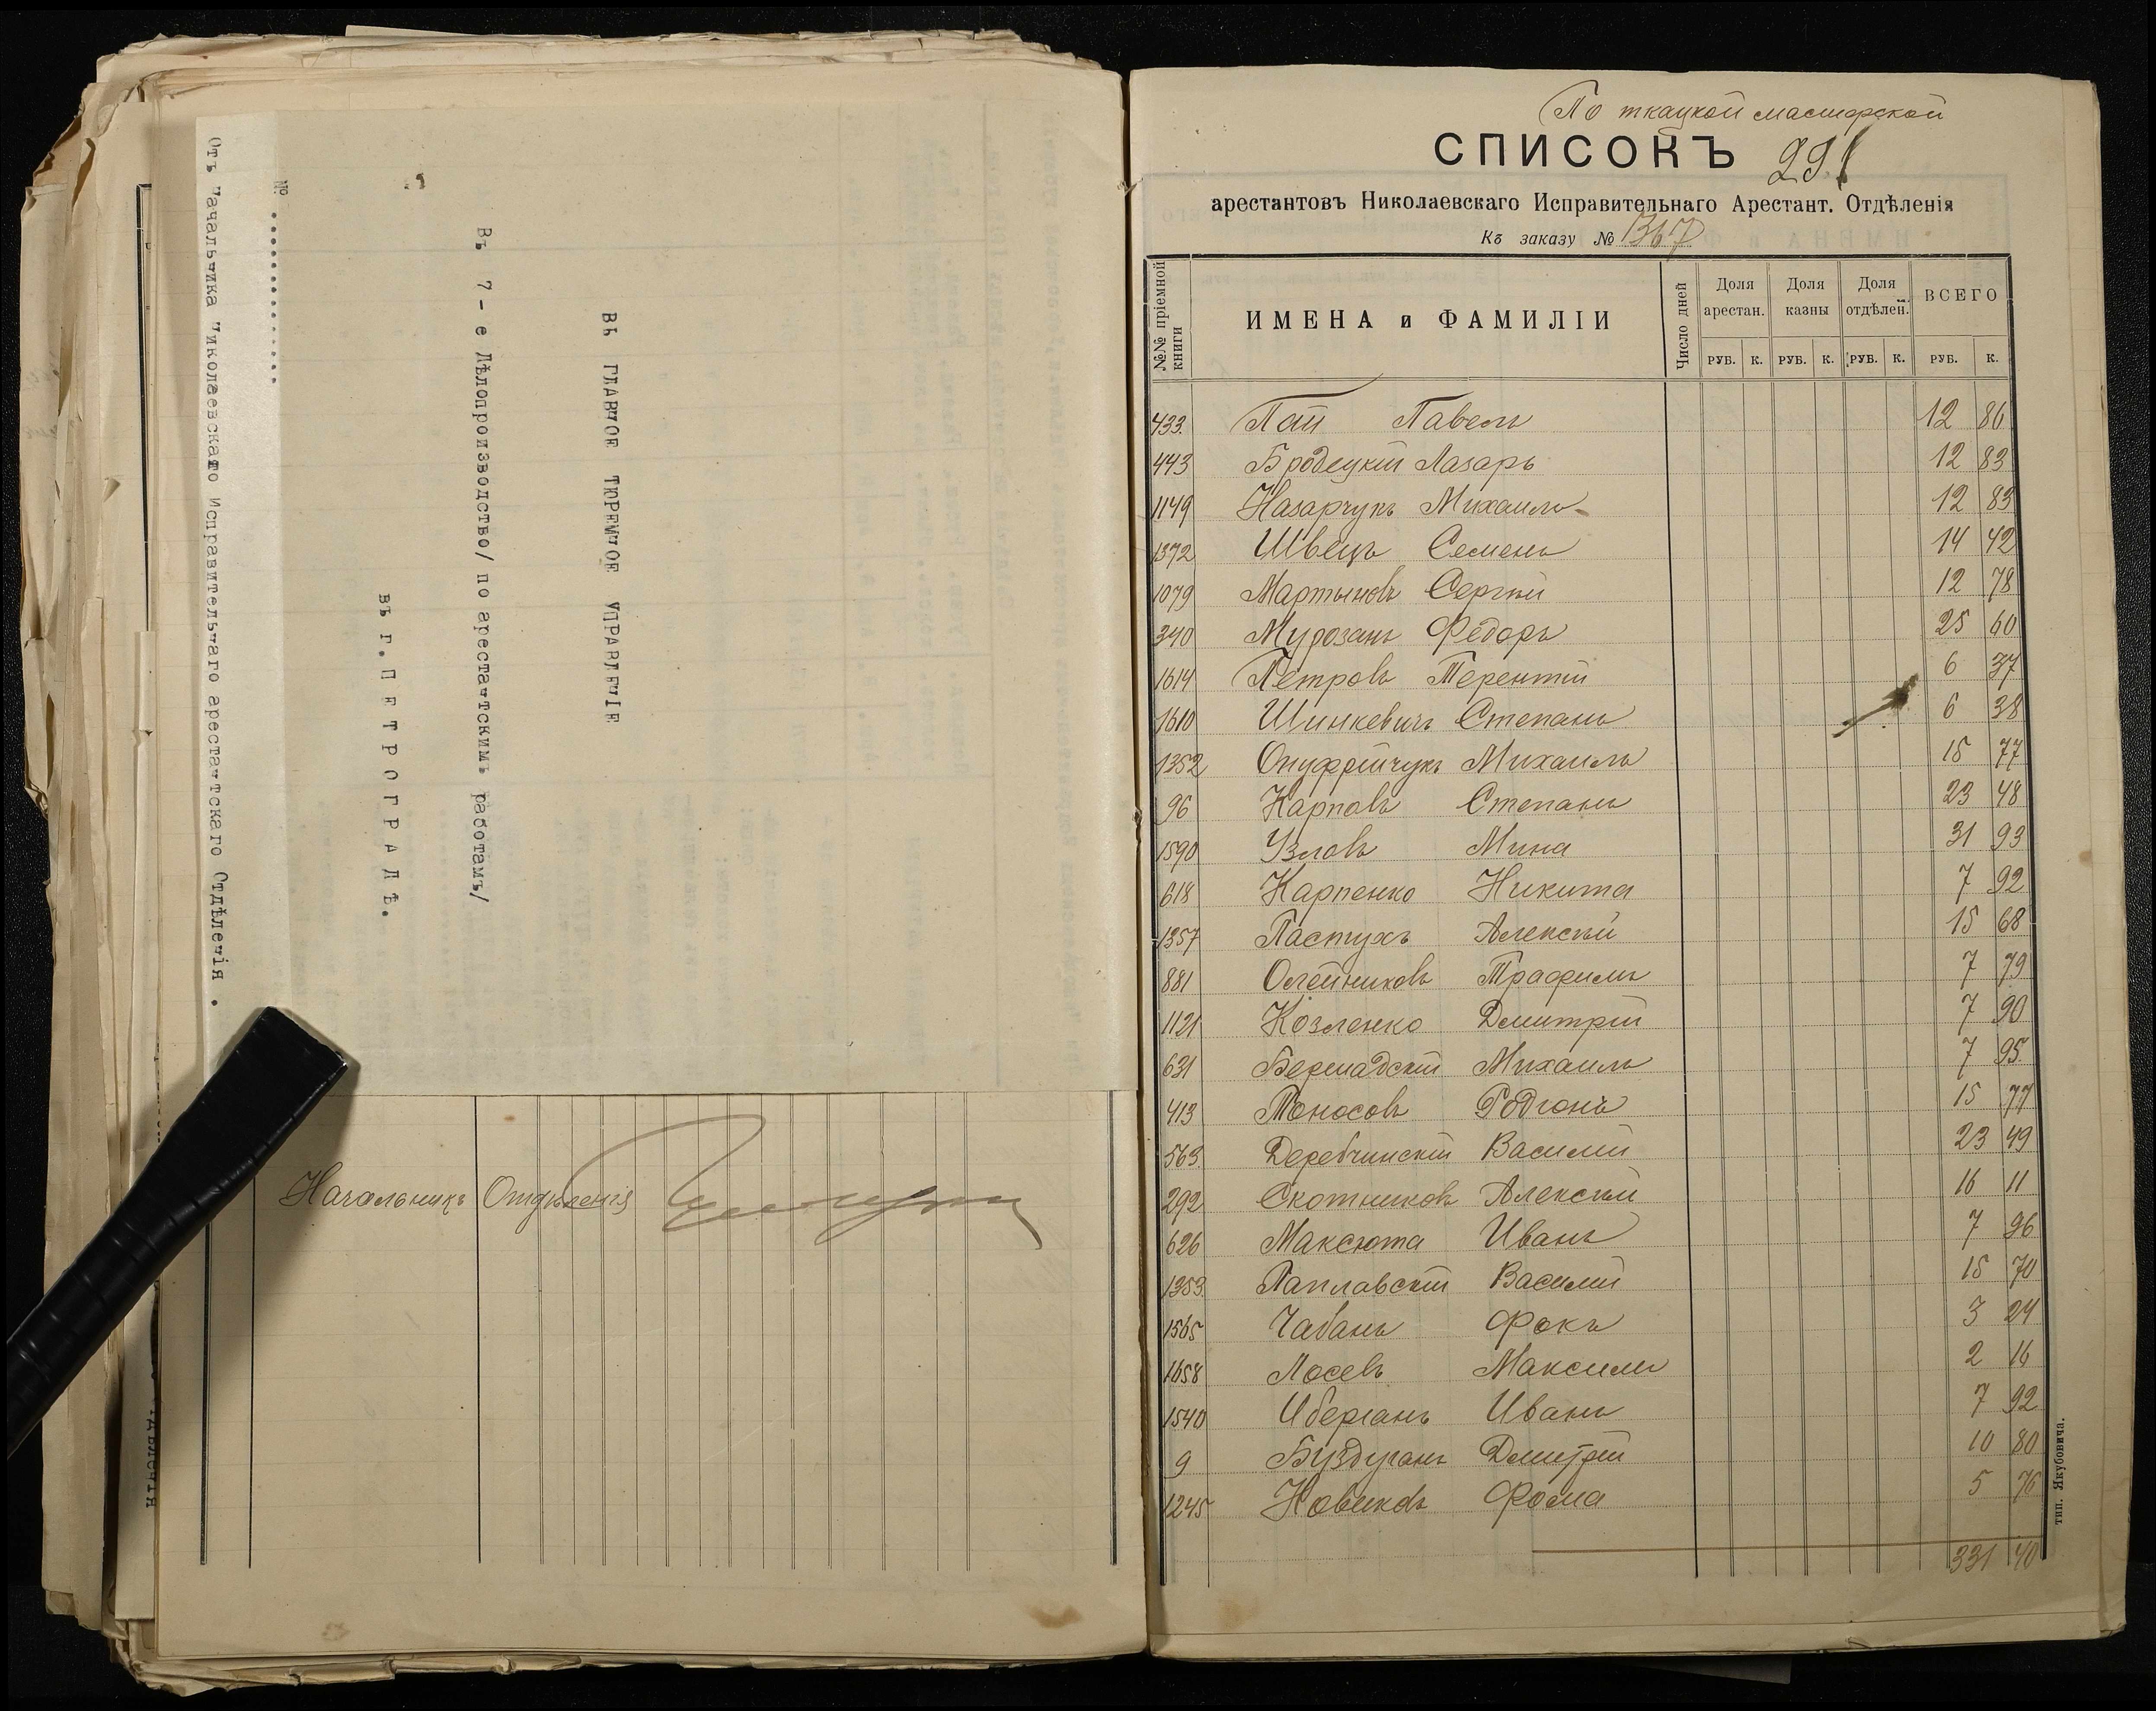 Отъ Начальника Николаевскаго Исправительнаго арестантскаго Отдѣленія.
№
Въ г. ПЕТРОГРАДѢ.
Въ 7 - е Дѣлопроизводство/ по арестантскимъ работамъ/
ВЪ ГЛАВНОЕ ТЮРЕМНОЕ УПРАВЛЕНІЕ
Начальникъ Отдѣленія
По ткацкой мастерской
СПИСОКЪ 291
арестантовъ Николаевскаго Исправительнаго Арестант. Отдѣленія
Къ заказу № 1367
№№ пріемной книги ИМЕНА и ФАМИЛІИ Число дней Доля арестан. Доля казны Доля отдѣлен. ВСЕГО
РУБ. К. РУБ. К. РУБ. К. РУБ. К.
433. Пай Павелъ 12 86
443 Бродецкій Лазарь 12 83
1149 Назарчукъ Михаилъ 12 83
1372 Швецъ Семенъ 14 42
1079 Мартыновъ Сергѣй 12 78
340 Мурозанъ Федоръ 25 60
1614 Петровъ Терентій 6 37
1610 Шинкевичъ Степанъ 6 38
1352 Онуфрійчукъ Михаилъ 15 77
96 Карповъ Степанъ 23 48
1590 Узловъ Мина 31 93
618 Карпенко Никита 7 92
1357 Пастухъ Алексѣй 15 68
881 Олейниковъ Трафимъ 7 79
1121 Козленко Дмитрій 7 90
631 Бермадскій Михаилъ 7 95
413 Тоносовъ Родіонъ 15 77
563. Деребчинскій Василій 23 49
292 Скотниковъ Алексѣй 16 11
626 Максюта Иванъ 7 96
1353. Паплавскій Василій 15 70
1565 Чабанъ Фокъ 3 24
1658 Лосевъ Максимъ 2 16
1540 Ибергань Иванъ 7 92
9 Буздуганъ Дмитрій 10 80
1245 Новиковъ Фома 5 76
331 40
тип. Якубовича.